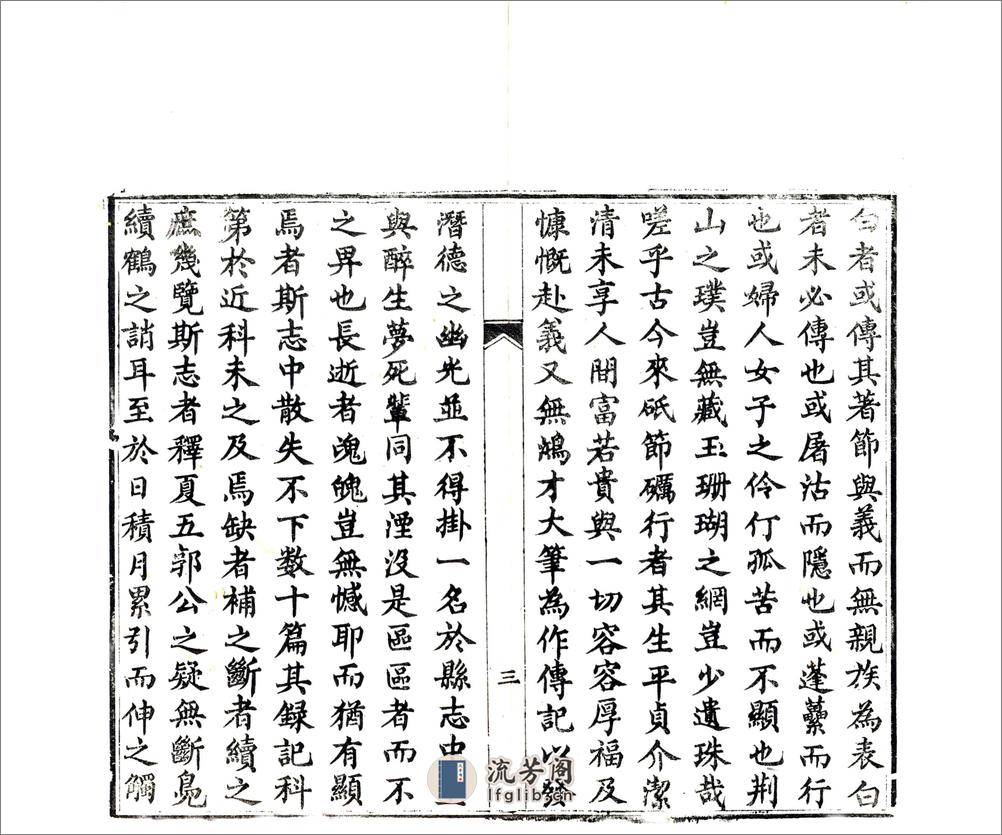 白者或傳其著節與義而無親族為表白
者未必傳也或屠沽而隱也或蓬虆而行
也或婦人女子之伶仃孤苦而不顯也荆
山之璞豈無藏玉珊瑚之網豈少遺珠哉
嗟乎古今來砥節礪行者其生平貞介潔
清未享人間富若貴與一切容容厚福及
慷慨赴義又無鴻才大筆為作傳記以發
三
潛德之幽光並不得掛一名於縣志中
與醉生夢死輩同其湮沒是區區者而不
之畀也長逝者魂魄豈無憾耶而猶有顯
焉者斯志中散失不下数十篇其録記科
第於近科未之及焉缺者補之斷者續之
庶幾覽斯志者釋夏五郭公之疑無斷鳧
續鶴之誚耳至於日積月累引而伸之觸
流芳阁
lfglib.com